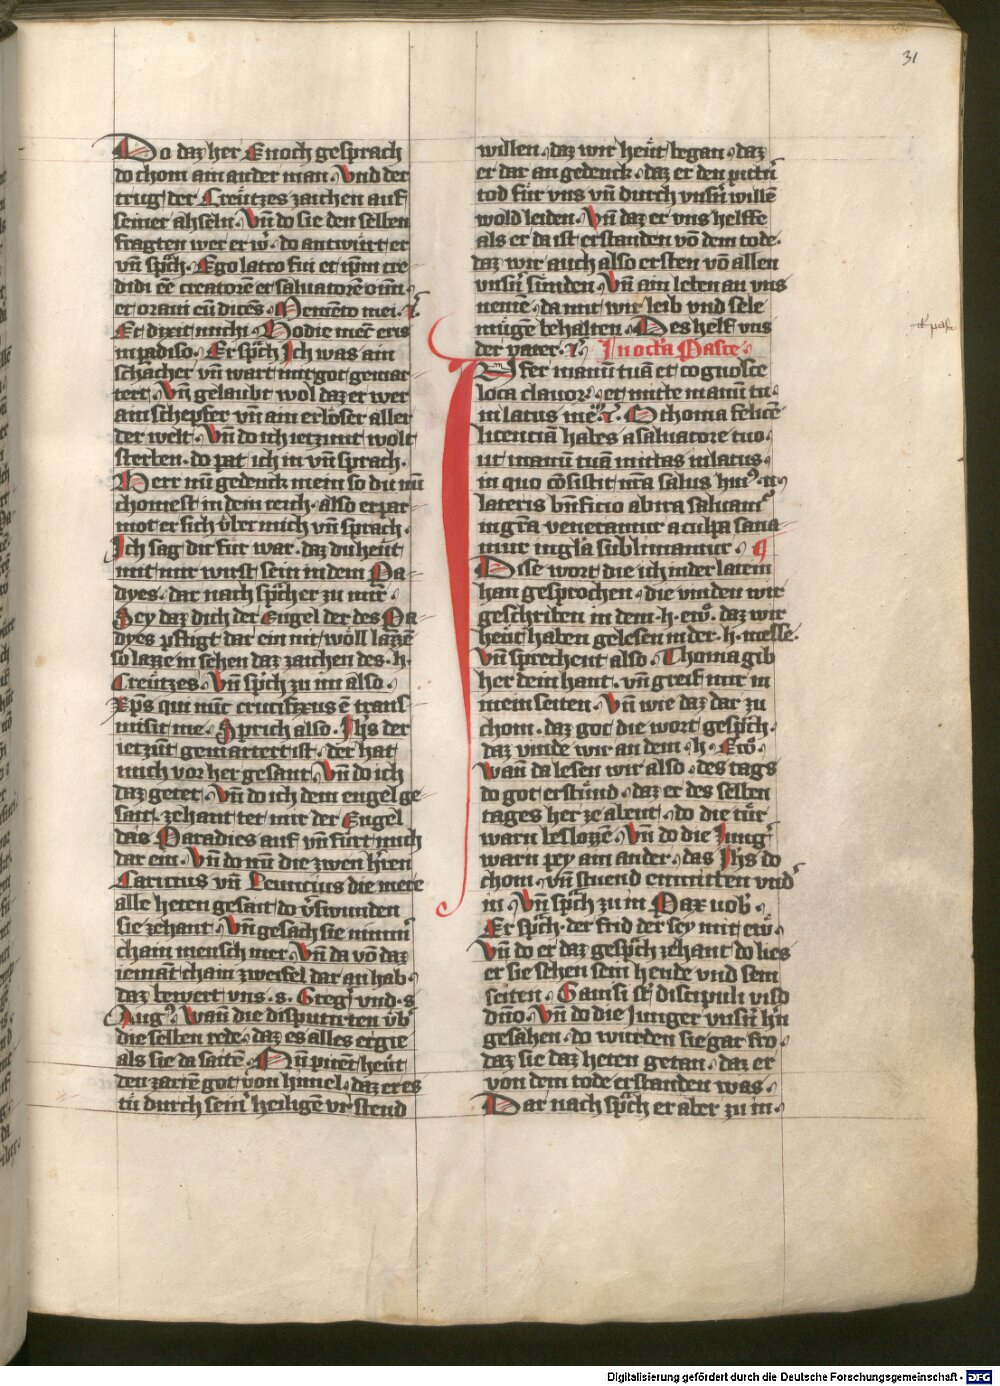 31
Do daz her Enoch gesprach
do chom ain ander man. Vnd der
trug der Creützes zaichen auf
seiner ahseln. Vn̄ do sie den selben
fragten wer er w̄. do antwurt er
vn̄ sprͣch. Ego latro fui et ip̄m cre
didi ēē creatorē et saluatorē om̄iū
et oraui eū dicēs. Memēto mei. ⁊c
Et dixit michi. Hodie mecū eris
in ꝑadiso. Er sprͣch Ich was ain
schacher vn̄ wart mit got gemar
tert. Vn̄ gelaubt wol daz er wer
ain schepfer vn̄ ain erlöser aller
der welt. Vn̄ do ich ietzunt wolt
sterben. do pat ich in vn̄ sprach.
Herr nū gedenck mein so du nū
chomest in dem reich. also erpar
mot er sich v̈ber mich vn̄ sprach.
Ich sag dir für war. daz du heüt
mit mir wirst sein in dem Pa
dyes. dar nach sprͣch er zu mir
Sey daz dich der Engel der des Pa
dyes pfligt dar ein nit wöll lazzē
so lazze in sehen daz zaichen des .h.
Creützes. Vn̄ sprich zu im also.
Xp̄s qui nūc crucifixus ē trans
misit me. Sprich also. Jh̄s der
ietzūt gemartert ist. der hat
mich vor her gesant. Vn̄ do ich
daz getet. Vn̄ do ich dem engel ge
sait. zehant tet mir der Engel
das Paradies auf vn̄ fürt mich
dar ein. Vn̄ do nū die zwen h̄ren
Carinus vn̄ Leuncius die mere
alle heten gesait do v̄swunden
sie zehant. Vn̄ gesach sie nim̄
chain mensch mer. Vn̄ da vō daz
iemāt chain zweifel dar an hab.
daz bewert vns .s. Greg⁹ vnd .s.
Aug⁹. Wan̄ die disputirten v̈b
die selben rede. daz es alles ergie
als sie da saitē. Nū piten heüt
den zartē got von himel. daz er es
tü durch sein heiligē vrstend
willen. daz wir heüt began. daz
er dar an gedenck. daz er den pittn̄
tod für vns vn̄ durch vnsn̄ willē
wold leiden. Vn̄ daz er vns helffe
als er da ist erstanden vō dem tode.
daz wir auch also ersten vō allen
vnsn̄ sünden. Vn̄ ain leben an vns
nemē. da mit wir leib vnd sele
mügē behalten. Des helf vns
der vater. ⁊c. In octā Pasce.
Infer manū tuā et cognosce
loca clauoꝝ. et mitte manū tu
in latus meū. ⁊c. O thoma felicē
licenciā habes a saluatore tuo.
ut manū tuā mittas in latus.
in quo cōsistit nr̄a salus hui⁹ .n.
lateris bn̄ficio ab ira saluam̄
in gr̄a veneramur a culpa sana
mur in gl̄a sublimamur. ¶
Disse wort die ich in der latein
han gesprochen. die vinden wir
geschriben in dem .h. ewͦ. daz wir
heüt haben gelesen in der .h. messe.
Vn̄ sprechent also. Thoma gib
her dein hant. vn̄ greif mir in
mein seiten. Vn̄ wie daz dar zu
chom. daz got die wort gesprͣch.
daz vinde wir an dem .h. Ewͦ.
Wan̄ da lesen wir also. des tags
do got erstünd. daz er des selben
tages her ze abent. do die tür
warn beslozzē. Vn̄ do die Jung
warn pey ain ander. das Jh̄s do
chom. vn̄ stuend enmitten vnd
in. Vn̄ sprͣch zu in Pax uob̄.
Er sprͣch. der frid der sey mit ew̄.
Vn̄ do er daz gesprͣch zehant do lies
er sie sehen sein hende vnd sein
seiten. Gauisi st̄ discipuli viso
dn̄o. Vn̄ do die Junger vnsn̄ h̄n
gesahen. do wurden sie gar fro
daz sie daz heten getan. daz er
von dem tode erstanden was.
Dar nach sprͣch er aber zu in.
Digitalisierung gefördert durch die Deutsche Forschungsgemeinschaft - DFG